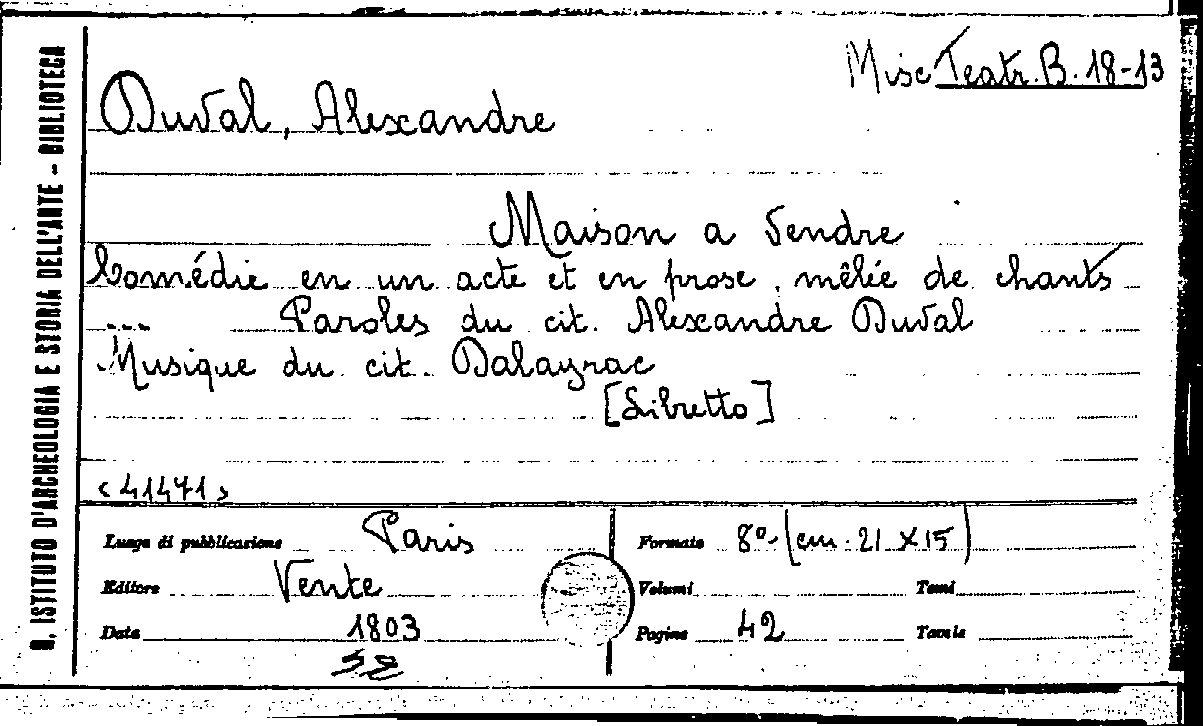 R. ISTITUTO D'ARCHEOLOGIA E STORIA DELL'ARTE - BIBLIOTECA
Misc Teatr. B. 18-13
Duval, Alexandre
Maison a Vendre
Comédie en un acte et en prose, mêlée de chants
... Paroles du cit. Alexandre Duval
Musique du cit. Dalayrac
[Libretto]
<41471>
Luogo di pubblicazione Paris Formato 8º (cm. 21 x 15)
Editore Vente Volumi Tomi
Data 1803 Pagine 42 Tavole